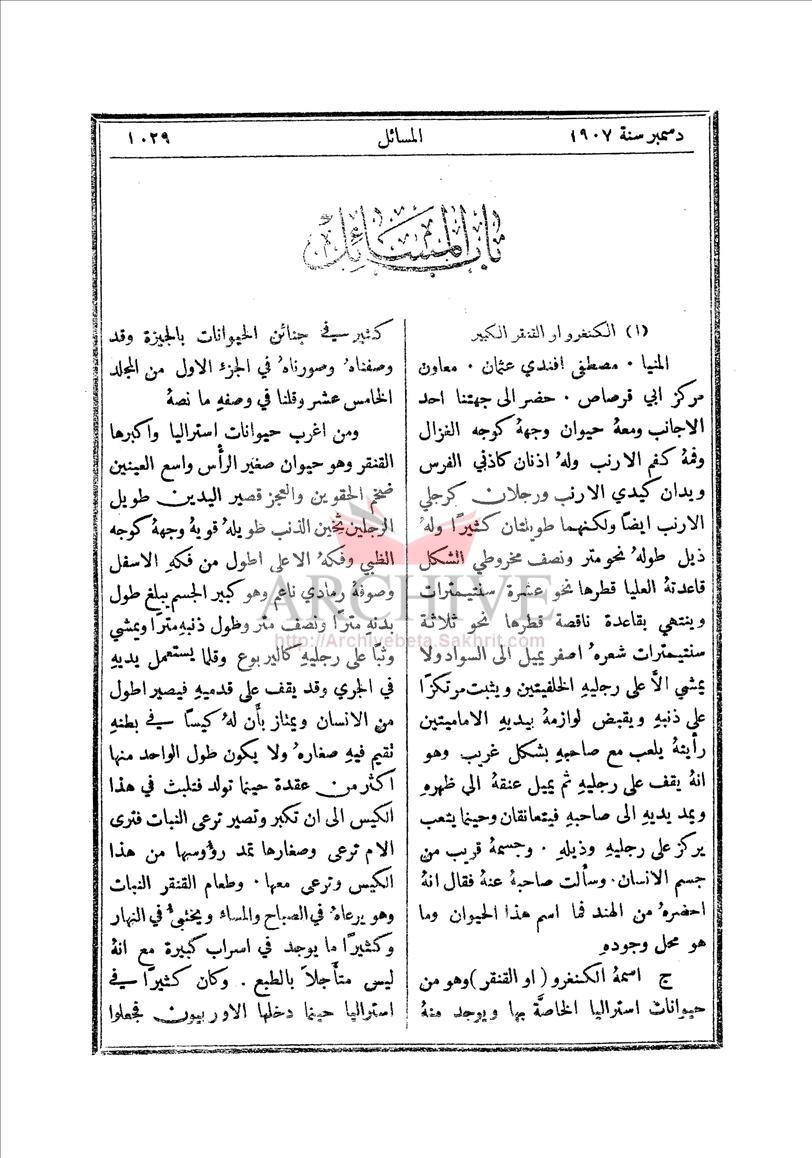 دسمبر سنة ١٩٠٧
المسائل
١٠٣٩
باب المسائل
(١) الكنغرو او القنقر الكبير
المنيا ٠ مصطفى افندي عثمان ٠ معاون
مركز ابي قرصاص ٠ حضر الى جهتنا احد
الاجانب ومعهُ حيوان وجههُ كوجه الغزال
وفمهُ كفم الارنب ولهُ اذنان كاذني الفرس
ويدان كيدي الارنب ورجلان كرجلي
الارنب ايضًا ولكنهما طويلتان كثيرًا ولهُ
ذيل طولهُ نحو متر ونصف مخروطي الشكل
قاعدتهُ العليا قطرها نحو عشرة سنتيمترات
وينتهي بقاعدة ناقصة قطرها نحو ثلاثة
سنتيمترات شعرهُ اصفر يميل الى السواد ولا
يمشي الاَّ على رجليهِ الخلفيتين ويثبت مرتكزًا
على ذنبهِ ويقبض لوازمهُ بيديهِ الاماميتين
رأيتهُ يلعب مع صاحبهِ بشكل غريب وهو
انهُ يقف على رجليهِ ثم يميل عنقهُ الى ظهرهِ
ويمد يديهِ الى صاحبهِ فيتعانقان وحينما يتعب
يركز على رجليهِ وذيلهِ ٠ وجسمهُ قريب من
جسم الانسان ٠ وسألت صاحبهُ عنهُ فقال انهُ
احضرهُ من الهند فما اسم هذا الحيوان وما
هو محل وجودهِ
ج اسمهُ الكنغرو (او القنقر) وهو من
حيوانات استراليا الخاصَّة بها ويوجد منهُ
كثير في جنائن الحيوانات بالجيزة وقد
وصفناهُ وصورناهُ في الجزء الاول من المجلد
الخامس عشر وقلنا في وصفهِ ما نصهُ
ومن اغرب حيوانات استراليا واكبرها
القنقر وهو حيوان صغير الرأس واسع العينين
ضخم الحقوين والعجز قصير اليدين طويل
الرجلين ثخين الذنب طويلهُ قويهُ وجههُ كوجه
الظبي وفكهُ الاعلى اطول من فكهِ الاسفل
وصوفهُ رمادي ناعم وهو كبير الجسم يبلغ طول
بدنه مترًا ونصف متر وطول ذنبهِ مترًا ويمشي
وثبًا على رجليهِ كاليربوع وقلما يستعمل يديهِ
في الجري وقد يقف على قدميهِ فيصير اطول
من الانسان ويمتاز بأن لهُ كيسًا في بطنهِ
تقيم فيهِ صغارهُ ولا يكون طول الواحد منها
اكثر من عقدة حينما تولد فتلبث في هذا
الكيس الى ان تكبر وتصير ترعى النبات فترى
الام ترعى وصغارها تمد رؤوسها من هذا
الكيس وترعى معها ٠ وطعام القنقر النبات
وهو يرعاهُ في الصباح والمساء ويختبئ في النهار
وكثيرًا ما يوجد في اسراب كبيرة مع انهُ
ليس متأجلاً بالطبع ٠ وكان كثيرًا في
استراليا حينما دخلها الاوربيون فجعلوا
ARCHIVE
http://Archivebeta.Sakhrit.com